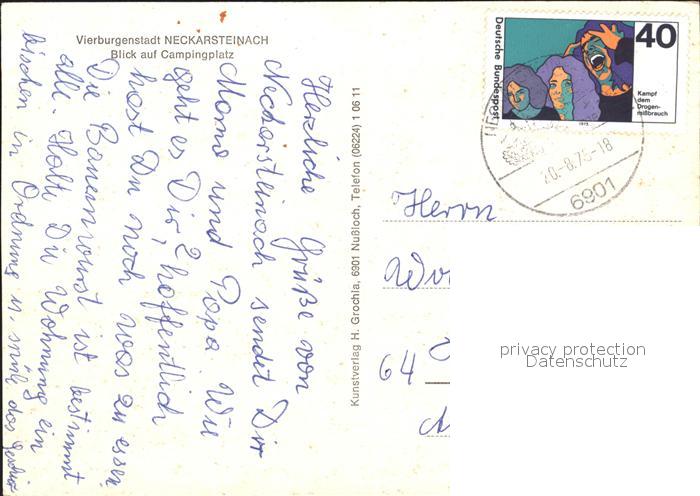 Vierburgenstadt NECKARSTEINACH
Blick auf Campingplatz
Herzliche Grüße von
Neckarsteinach sendet Dir
Mama und Papa. Wie
geht es Dir? hoffentlich
hast Du noch was zu essen
Die Bauernwurst ist bestimmt
alle. Halte Die Wohnung ein
bischen in Ordnung u. spüle das Geschirr
Kunstverlag H. Grochla, 6901 Nußloch, Telefon (06224) 1 06 11
Deutsche Bundespost
40
Kampf
dem
Drogen-
mißbrauch
1975
20.-8.75-18
6901
Herrn
64
privacy protection
Datenschutz